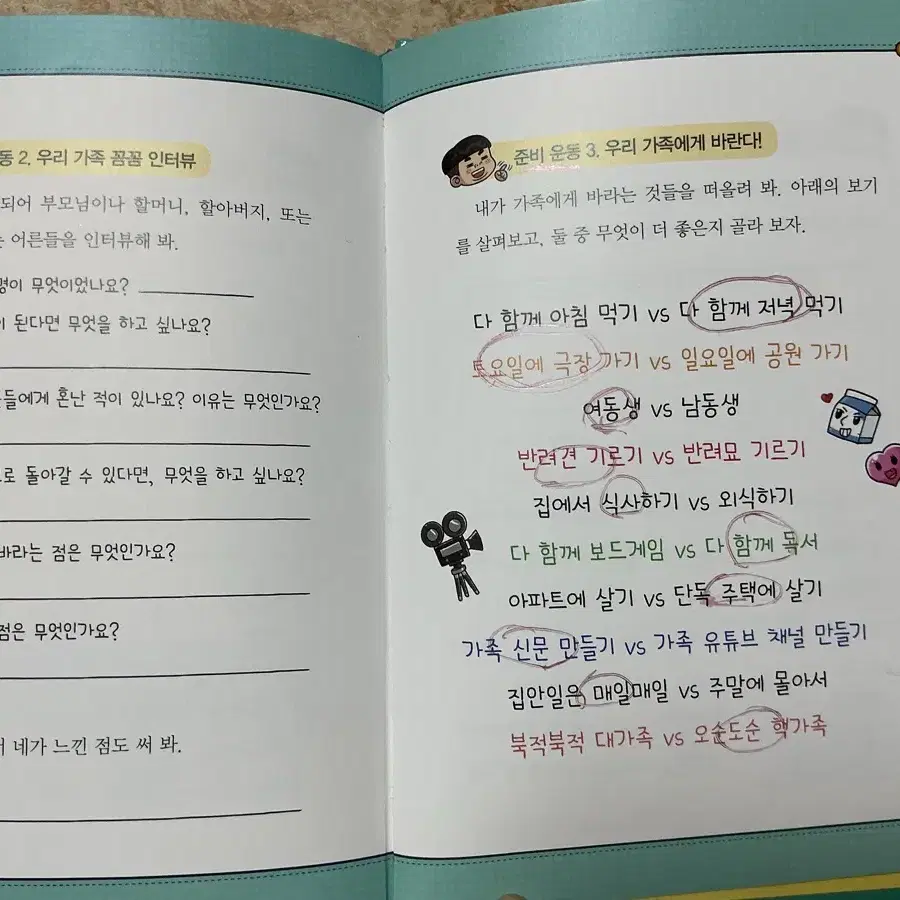 동 2. 우리 가족 꼼꼼 인터뷰
되어 부모님이나 할머니, 할아버지, 또는
는 어른들을 인터뷰해 봐.
명이 무엇이었나요?
이 된다면 무엇을 하고 싶나요?
른들에게 혼난 적이 있나요? 이유는 무엇인가요?
로 돌아갈 수 있다면, 무엇을 하고 싶나요?
바라는 점은 무엇인가요?
점은 무엇인가요?
네가 느낀 점도 써 봐.
준비 운동 3. 우리 가족에게 바란다!
내가 가족에게 바라는 것들을 떠올려 봐. 아래의 보기
를 살펴보고, 둘 중 무엇이 더 좋은지 골라 보자.
다 함께 아침 먹기 vs 다 함께 저녁 먹기
토요일에 극장 가기 vs 일요일에 공원 가기
여동생 vs 남동생
반려견 기르기 vs 반려묘 기르기
집에서 식사하기 vs 외식하기
다 함께 보드게임 vs 다 함께 독서
아파트에 살기 vs 단독 주택에 살기
가족 신문 만들기 vs 가족 유튜브 채널 만들기
집안일은 매일매일 vs 주말에 몰아서
북적북적 대가족 vs 오순도순 핵가족